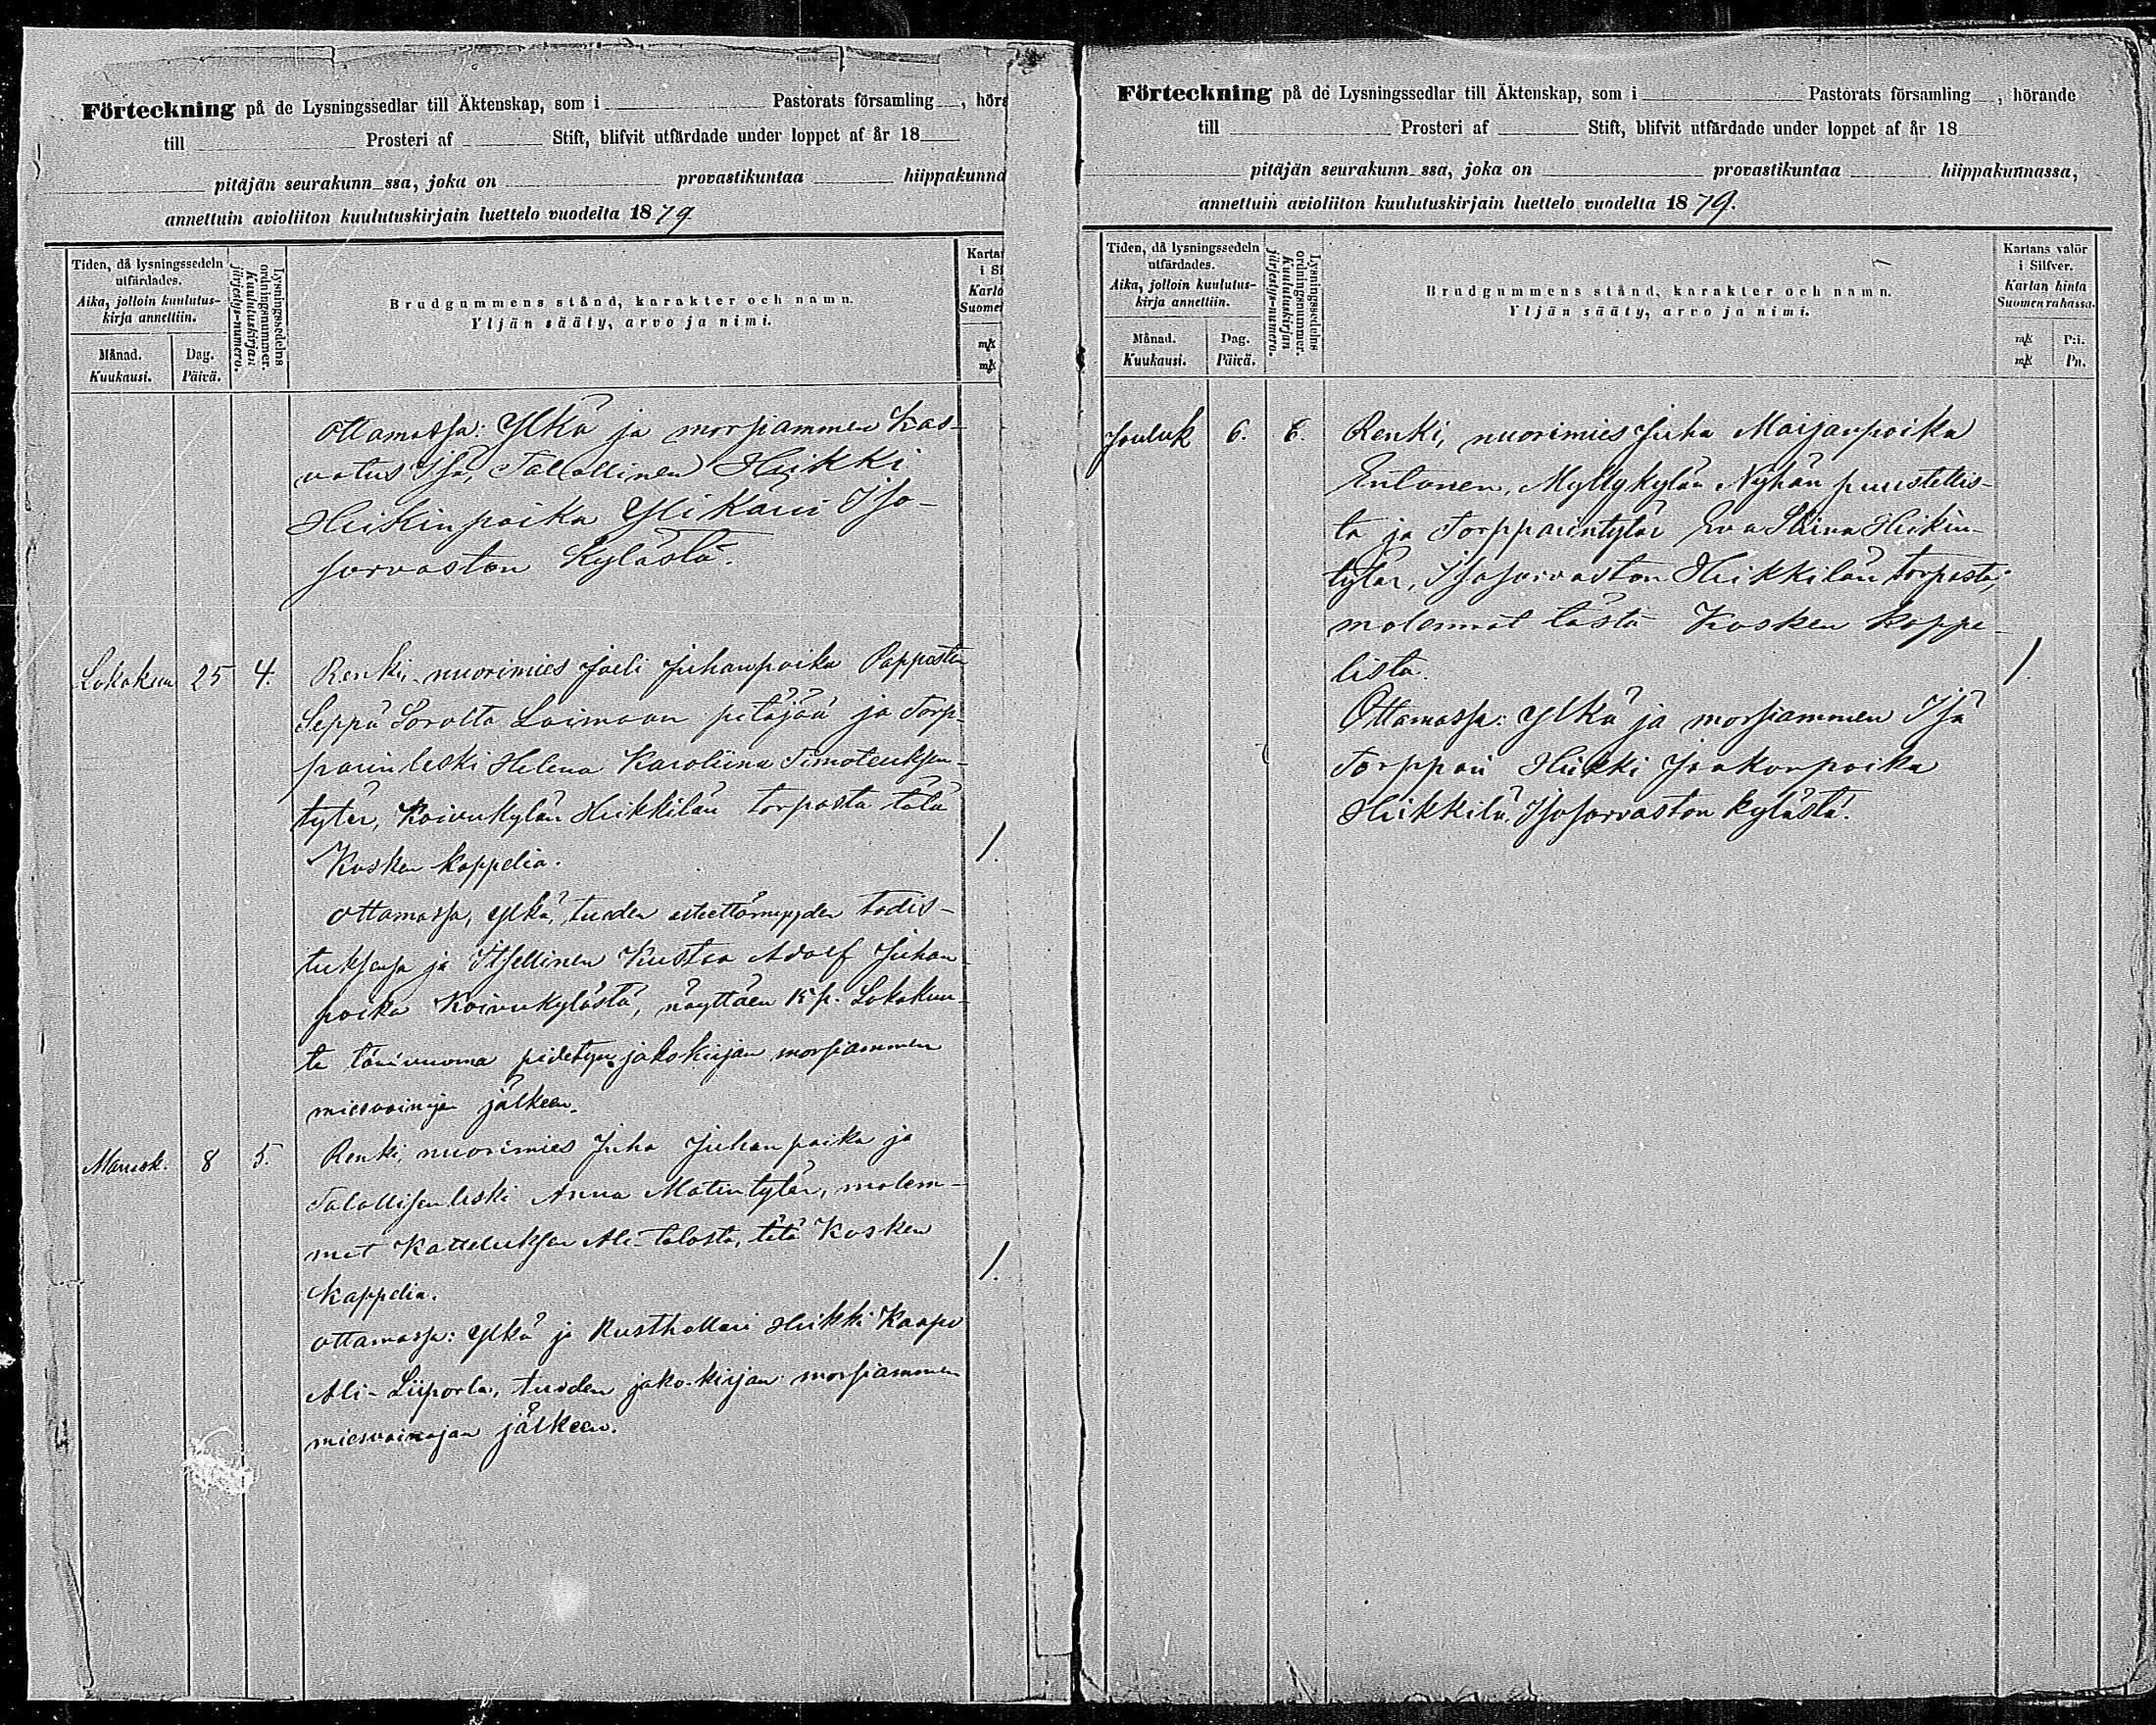 Förteckning på de Lysningssedlar till Äktenskap, som i Pastorats församling, höra
till Prosteri af Stift, blifvit utfärdade under loppet af år 18
pitäjän seurakunn ssa, joka on provastikuntaa hiippakunna
annettuin avioliiton kuulutuskirjain luettelo vuodelta 1879.
Tiden, då lysningssedeln
utfärdades.
Aika, jolloin kuulutus-
kirja annettiin.
Månad.
Kuukausi.
Dag.
Päivä.
Lysningssedelns
ordningsnummer.
Kuulutuskirjan
järjestys-numero.
Brudgummens stånd, karakter och namn.
Yljän sääty, arvo ja nimi.
Kartan
i Si
Karta
Suomen
mk
mk
Ottamassa: Ylkä ja morsiammen Kas-
vatus Isä, Talollinen Heikki
Heikinpoika Ylikärri Iso-
sorvaston Kylästä.
Lokakuu 25 4. Renki, nuorimies Joeli Juhanpoika Papposten
Seppä Sorolta Loimaan pitäjää ja Torp-
parinleski Helena Karoliina Timoteuksen-
tytär, Koivukylän Heikkilän torpasta tätä
Kosken kappelia. 1.
Ottamassa, Ylkä, tuoden esteettömyyden todis-
tuksensa ja Itsellinen Kustaa Adolf Juhan-
poika Koivukylästä, näyttäen 15 p. Lokakuu-
ta tänävuonna pidetyn jakokirjan morsiammen
miesvainajan jälkeen.
Marrask. 8 5. Renki, nuorimies Juha Juhanpoika ja
Talollisenleski Anna Matintytär, molem-
mat Katteluksen Ali-talosta, tätä Kosken
Kappelia. 1.
Ottamassa: Ylkä ja Rusthollari Heikki Kaapo
Ali-Liiporla, tuoden jako-kirjan morsiammen
miesvainajan jälkeen.
Förteckning på de Lysningssedlar till Äktenskap, som i Pastorats församling, hörande
till Prosteri af Stift, blifvit utfärdade under loppet af år 18
pitäjän seurakunn ssa, joka on provastikuntaa hiippakunnassa,
annettuin avioliiton kuulutuskirjain luettelo vuodelta 1879.
Tiden, då lysningssedeln
utfärdades.
Aika, jolloin kuulutus-
kirja annettiin.
Månad.
Kuukausi.
Dag.
Päivä.
Lysningssedelns
ordningsnummer.
Kuulutuskirjan
järjestys-numero.
Brudgummens stånd, karakter och namn.
Yljän sääty, arvo ja nimi.
Kartans valör
i Silfver.
Kartan hinta
Suomen rahassa.
mk P:i.
mk Pn.
Jouluk 6. 6. Renki, nuorimies Juha Maijanpoika
Entonen, Myllykylän Nyhän puustellis-
ta ja Torpparintytär Eva Stiina Heikin-
tytär, Isosorvaston Heikkilän torpasta,
molemmat tästä Kosken Kappe-
lista. 1.
Ottamassa: Ylkä ja morsiammen Isä
Torppari Heikki Jaakonpoika
Heikkilä, Isosorvaston kylästä.